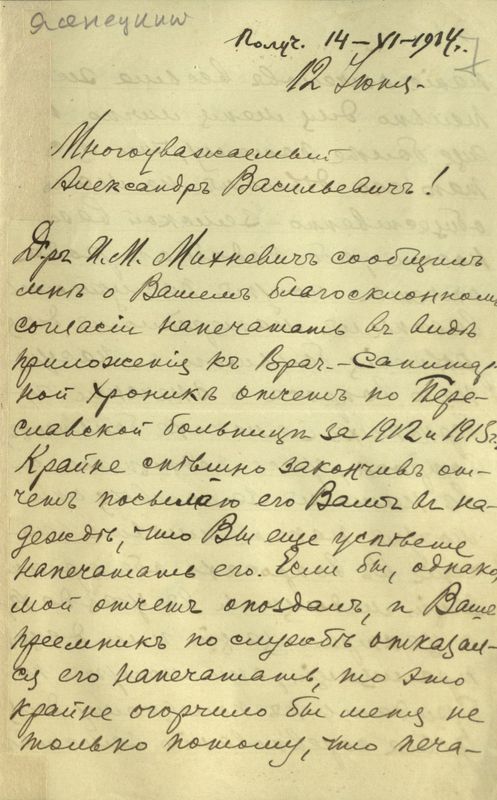 Яжнецкий
7
Получ. 14–XI–1914г.
12 Июня.
Многоуважаемый
Александръ Васильевичъ!
Д-ръ И. М. Михневичъ сообщилъ
мнѣ о Вашемъ благосклонномъ
согласіи напечатать въ видѣ
приложенія къ Врач.-Санитар-
ной Хроникѣ отчетъ по Пере-
славской больницѣ за 1912 и 1913 г.
Крайне спѣшно закончивъ от-
четъ посылаю его Вамъ въ на-
деждѣ, что Вы еще успѣете
напечатать его. Если бы, однако,
мой отчетъ опоздалъ, и Вашъ
преемникъ по службѣ отказал-
ся его напечатать, то это
крайне огорчило бы меня не
только потому, что печа-